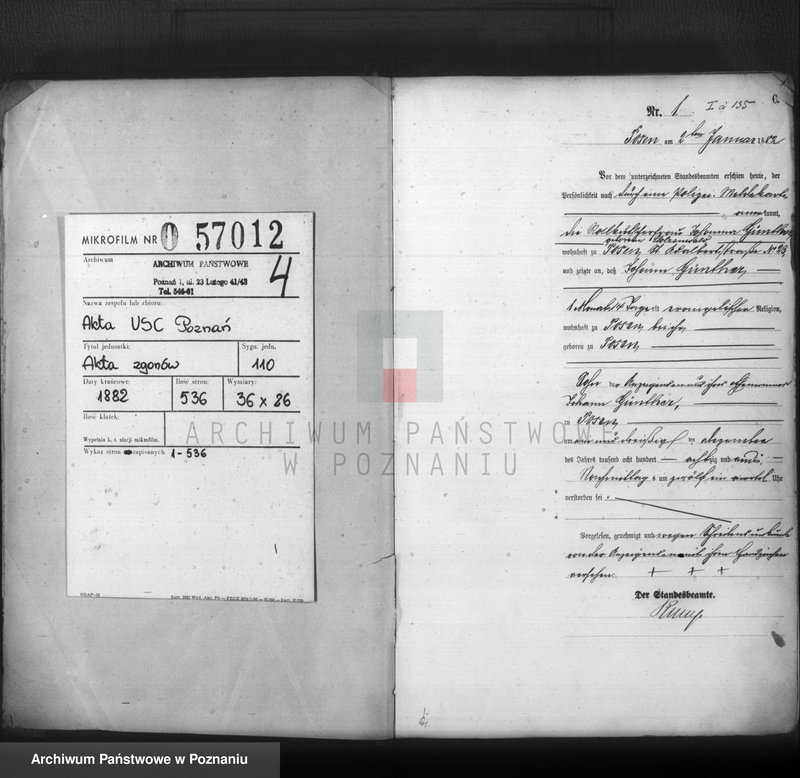 MIKROFILM NR 0 57012
Archiwum
ARCHIWUM PAŃSTWOWE
Poznań 1, ul. 23 Lutego 41/43
Tel. 546-01
4
Nazwa zespołu lub zbioru:
Akta USC Poznań
Tytuł jednostki: Sygn. jedn.
Akta zgonów 110
Daty krańcowe: Ilość stron: Wymiary:
1882 536 36 x 26
Ilość klatek:
Wypełnia k. t. stacji mikrofilm.
Wykaz stron zapisanych 1-536
C.
Nr. 1 I a 135
Posen am 2ten Januar 1882
Vor dem unterzeichneten Standesbeamten erschien heute, der
Persönlichkeit nach durch eine Polizei Meldekarte
anerkannt,
die Johanna Günther
geborene
wohnhaft zu Posen St. Adalbertstraße № 23
und zeigte an, daß Johann Günther
1 Monat 14 Tage alt evangelischer Religion,
wohnhaft zu Posen bei ihr,
geboren zu Posen,
Sohn der Anzeigenden und ihres Ehemannes
Johann Günther,
zu Posen,
am ein und dreißigsten Dezember
des Jahres tausend acht hundert achtzig und eins,
Nachmittag s um zwölf ein viertel Uhr
verstorben sei.
Vorgelesen, genehmigt und wegen Schreibensunkunde
von der Anzeigenden mit ihrem Handzeichen
versehen. + + +
Der Standesbeamte.
ARCHIWUM PAŃSTWOWE
W POZNANIU
Archiwum Państwowe w Poznaniu